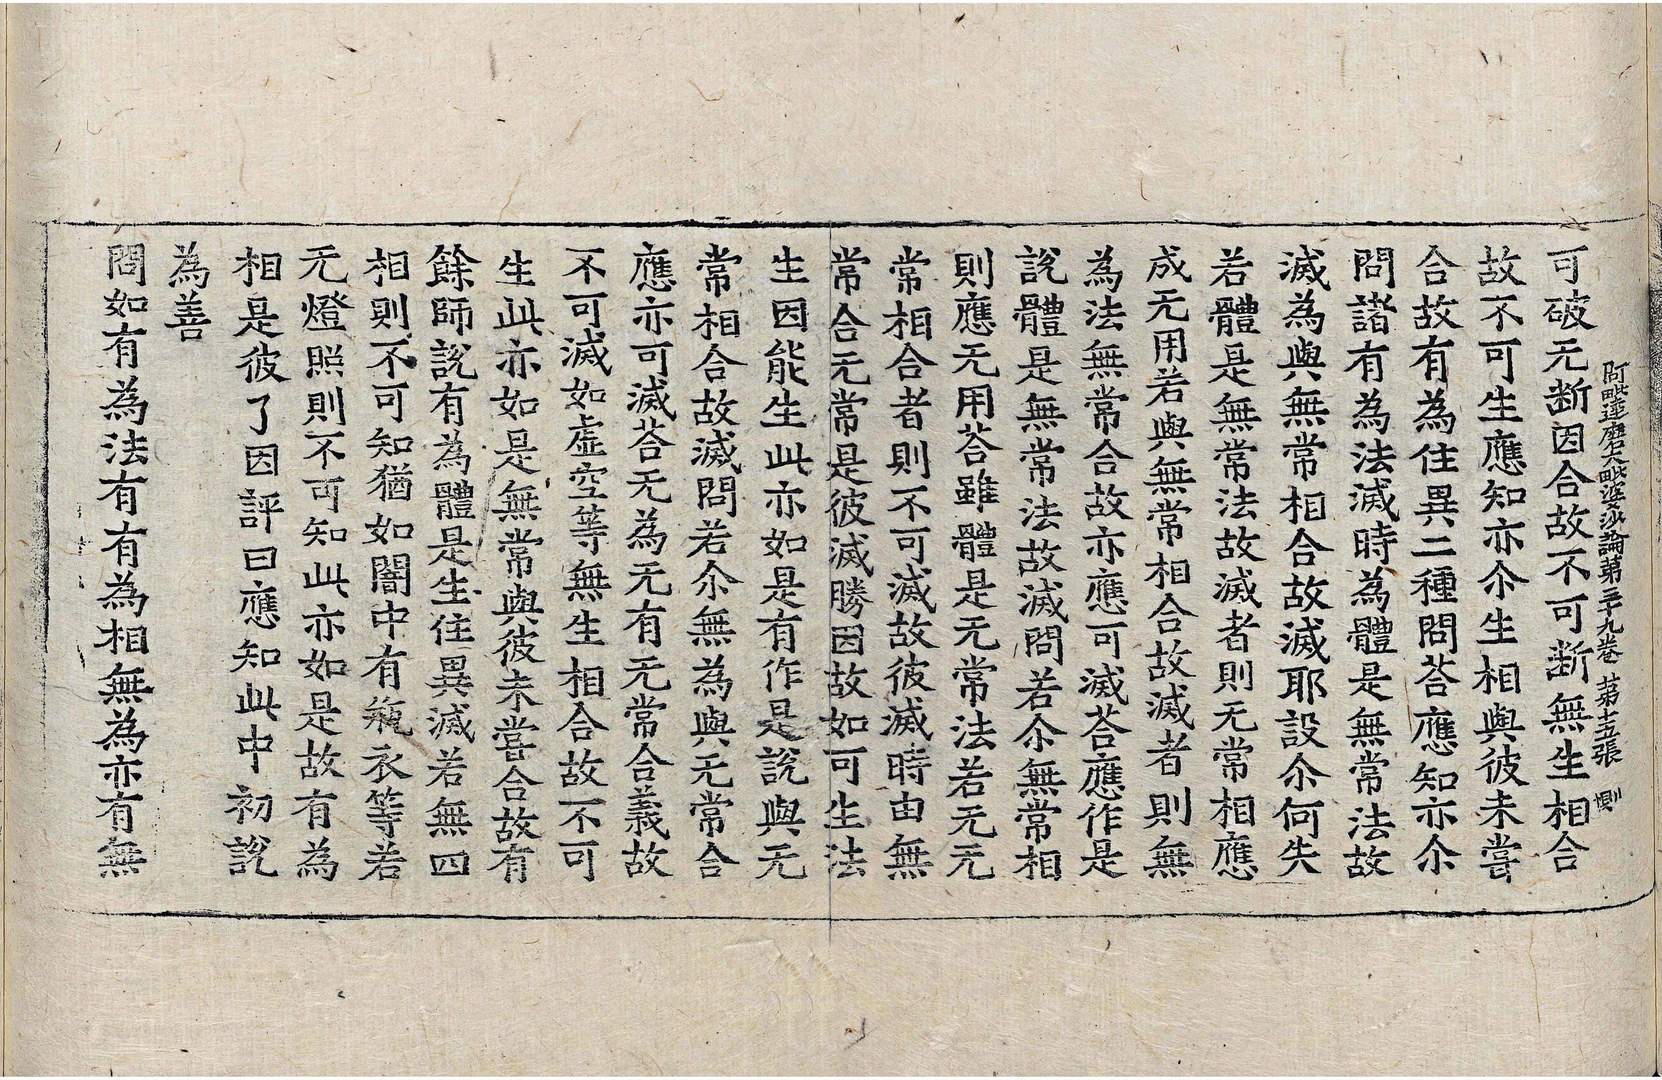 阿毗達磨大毗婆沙論第三十九卷 第十五張 惻
可破无断因合故不可断無生相合
故不可生應知亦尒生相與彼未嘗
合故有為住異二種問荅應知亦尒
問諸有為法滅時為體是無常法故
滅為與無常相合故滅耶設尒何失
若體是無常法故滅者則无常相應
成无用若與無常相合故滅者則無
為法無常合故亦應可滅荅應作是
說體是無常法故滅問若尒無常相
則應无用荅雖體是无常法若无无
常相合者則不可滅故彼滅時由無
常合无常是彼滅勝因故如可生法
生因能生此亦如是有作是說與无
常相合故滅問若尒無為與无常合
應亦可滅荅无為无有无常合義故
不可滅如虛空等無生相合故不可
生此亦如是無常與彼未嘗合故有
餘師說有為體是生住異滅若無四
相則不可知猶如闇中有瓶衣等若
无燈照則不可知此亦如是故有為
相是彼了因評曰應知此中初說
為善
問如有為法有有為相無為亦有無